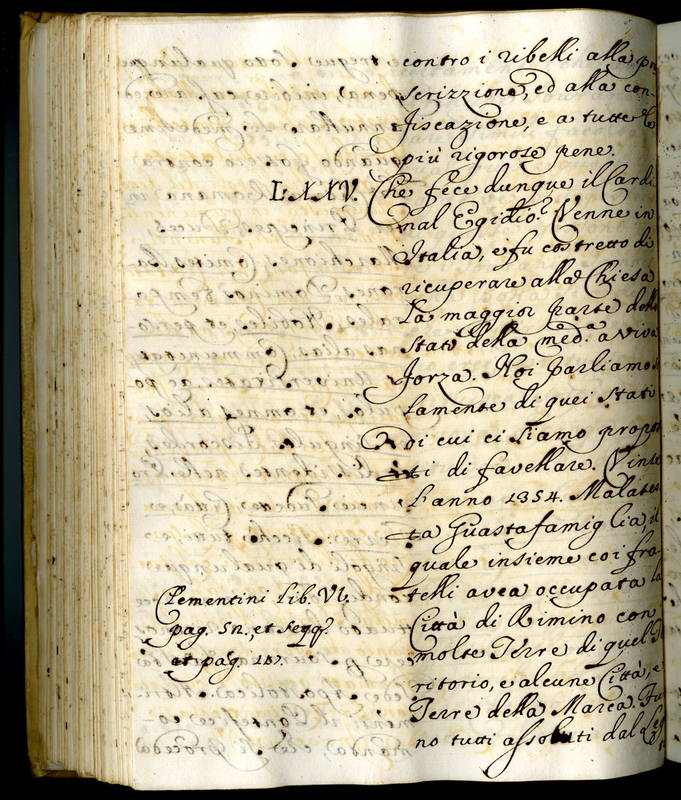 contro i ribelli alla pro
scrizzione, ed alla con-
fiscazione, e a tutte le
più rigorose pene.
LXXV. Che fece dunque il Cardi
nal Egidio? Venne in
Italia, e fu costretto di
ricuperare alla Chiesa
la maggior parte delli
stati della med.ª a viva
forza. Noi parliamo so
lamente di quei stati
di cui ci siamo propos
ti di favellare. Vinse
l'anno 1354. Malates
ta Guastafamiglia, il
quale insieme coi fra
telli avea occupata la
Città di Rimino con
molte Terre di quel Te
ritorio, e alcune Città, e
Terre della Marca. Fu
no tutti assoluti dal Leg
Clementini Lib. VI.
pag. et seqq.
et pag.